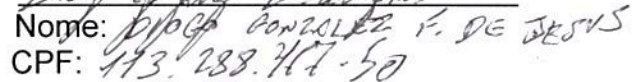 Nome: DIOGO GONZALEZ F. DE JESUS
CPF: 113.288.467-50